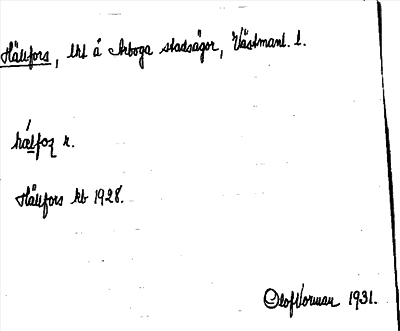 Hällfors, lht å Arboga stadsägor, Västmanl. l.
hälfoʂ r.
Hällfors kb 1928.
Olof Norman 1931.